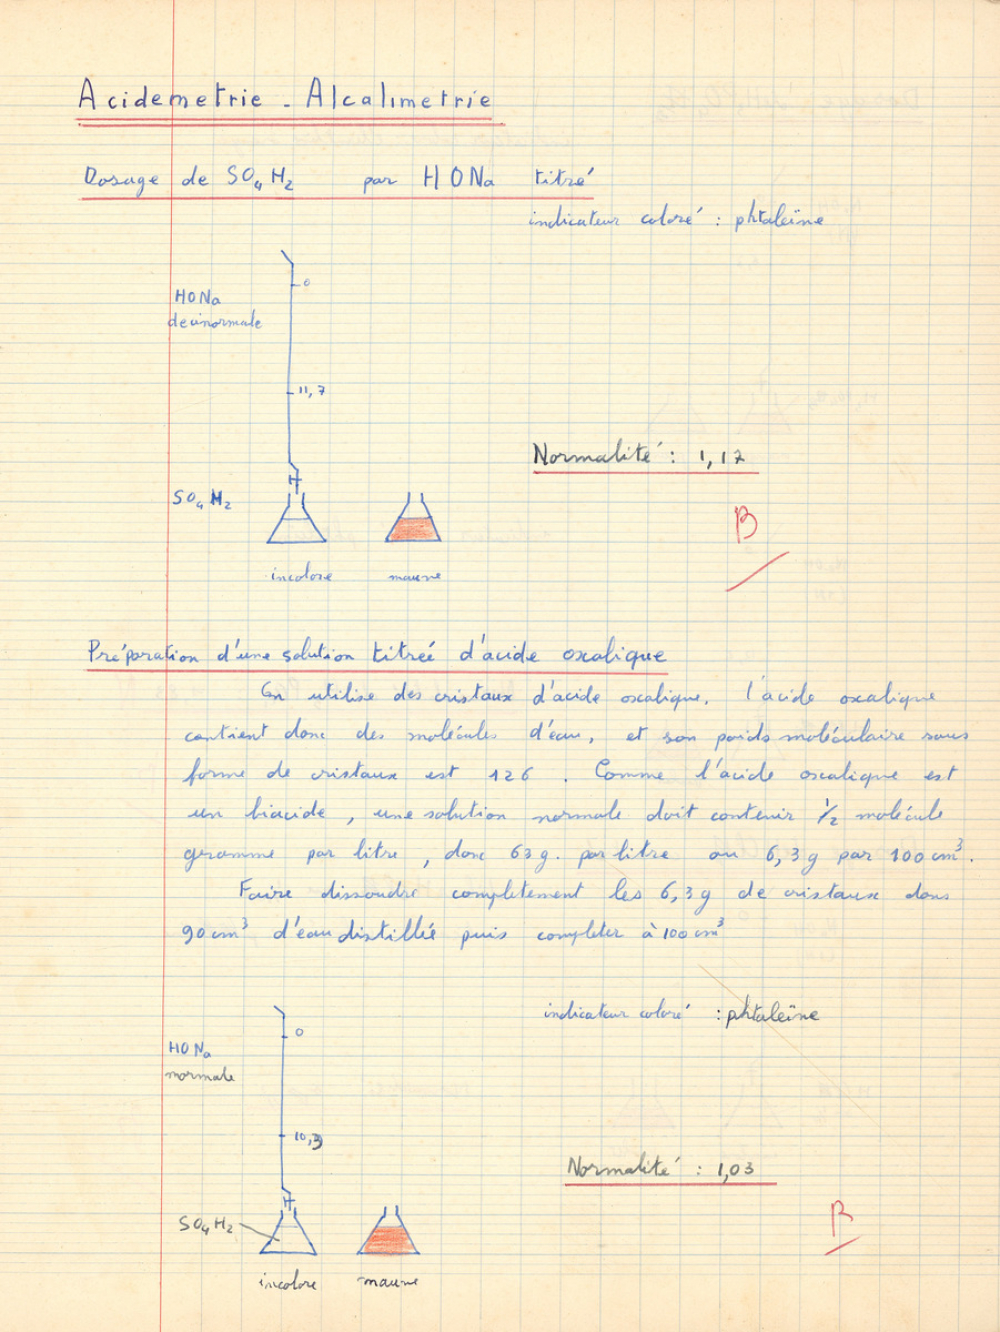 Acidemetrie - Alcalimetrie
Dosage de SO4H2 par HONa titré
indicateur coloré : phtaleïne
0
HONa
decinormale
11,7
Normalité : 1,17
SO4H2
B
incolore mauve
Préparation d'une solution titrée d'acide oxalique
On utilise des cristaux d'acide oxalique. l'acide oxalique
contient donc des molécules d'eau, et son poids moléculaire sous
forme de cristaux est 126. Comme l'acide oxalique est
un biacide, une solution normale doit contenir 1/2 molécule
gramme par litre, donc 63g. par litre ou 6,3g par 100 cm³.
Faire dissoudre completement les 6,3g de cristaux dans
90 cm³ d'eau distillée puis completer à 100 cm³
indicateur coloré : phtaleïne
0
HONa
normale
10,3
Normalité : 1,03
SO4H2
B
incolore mauve